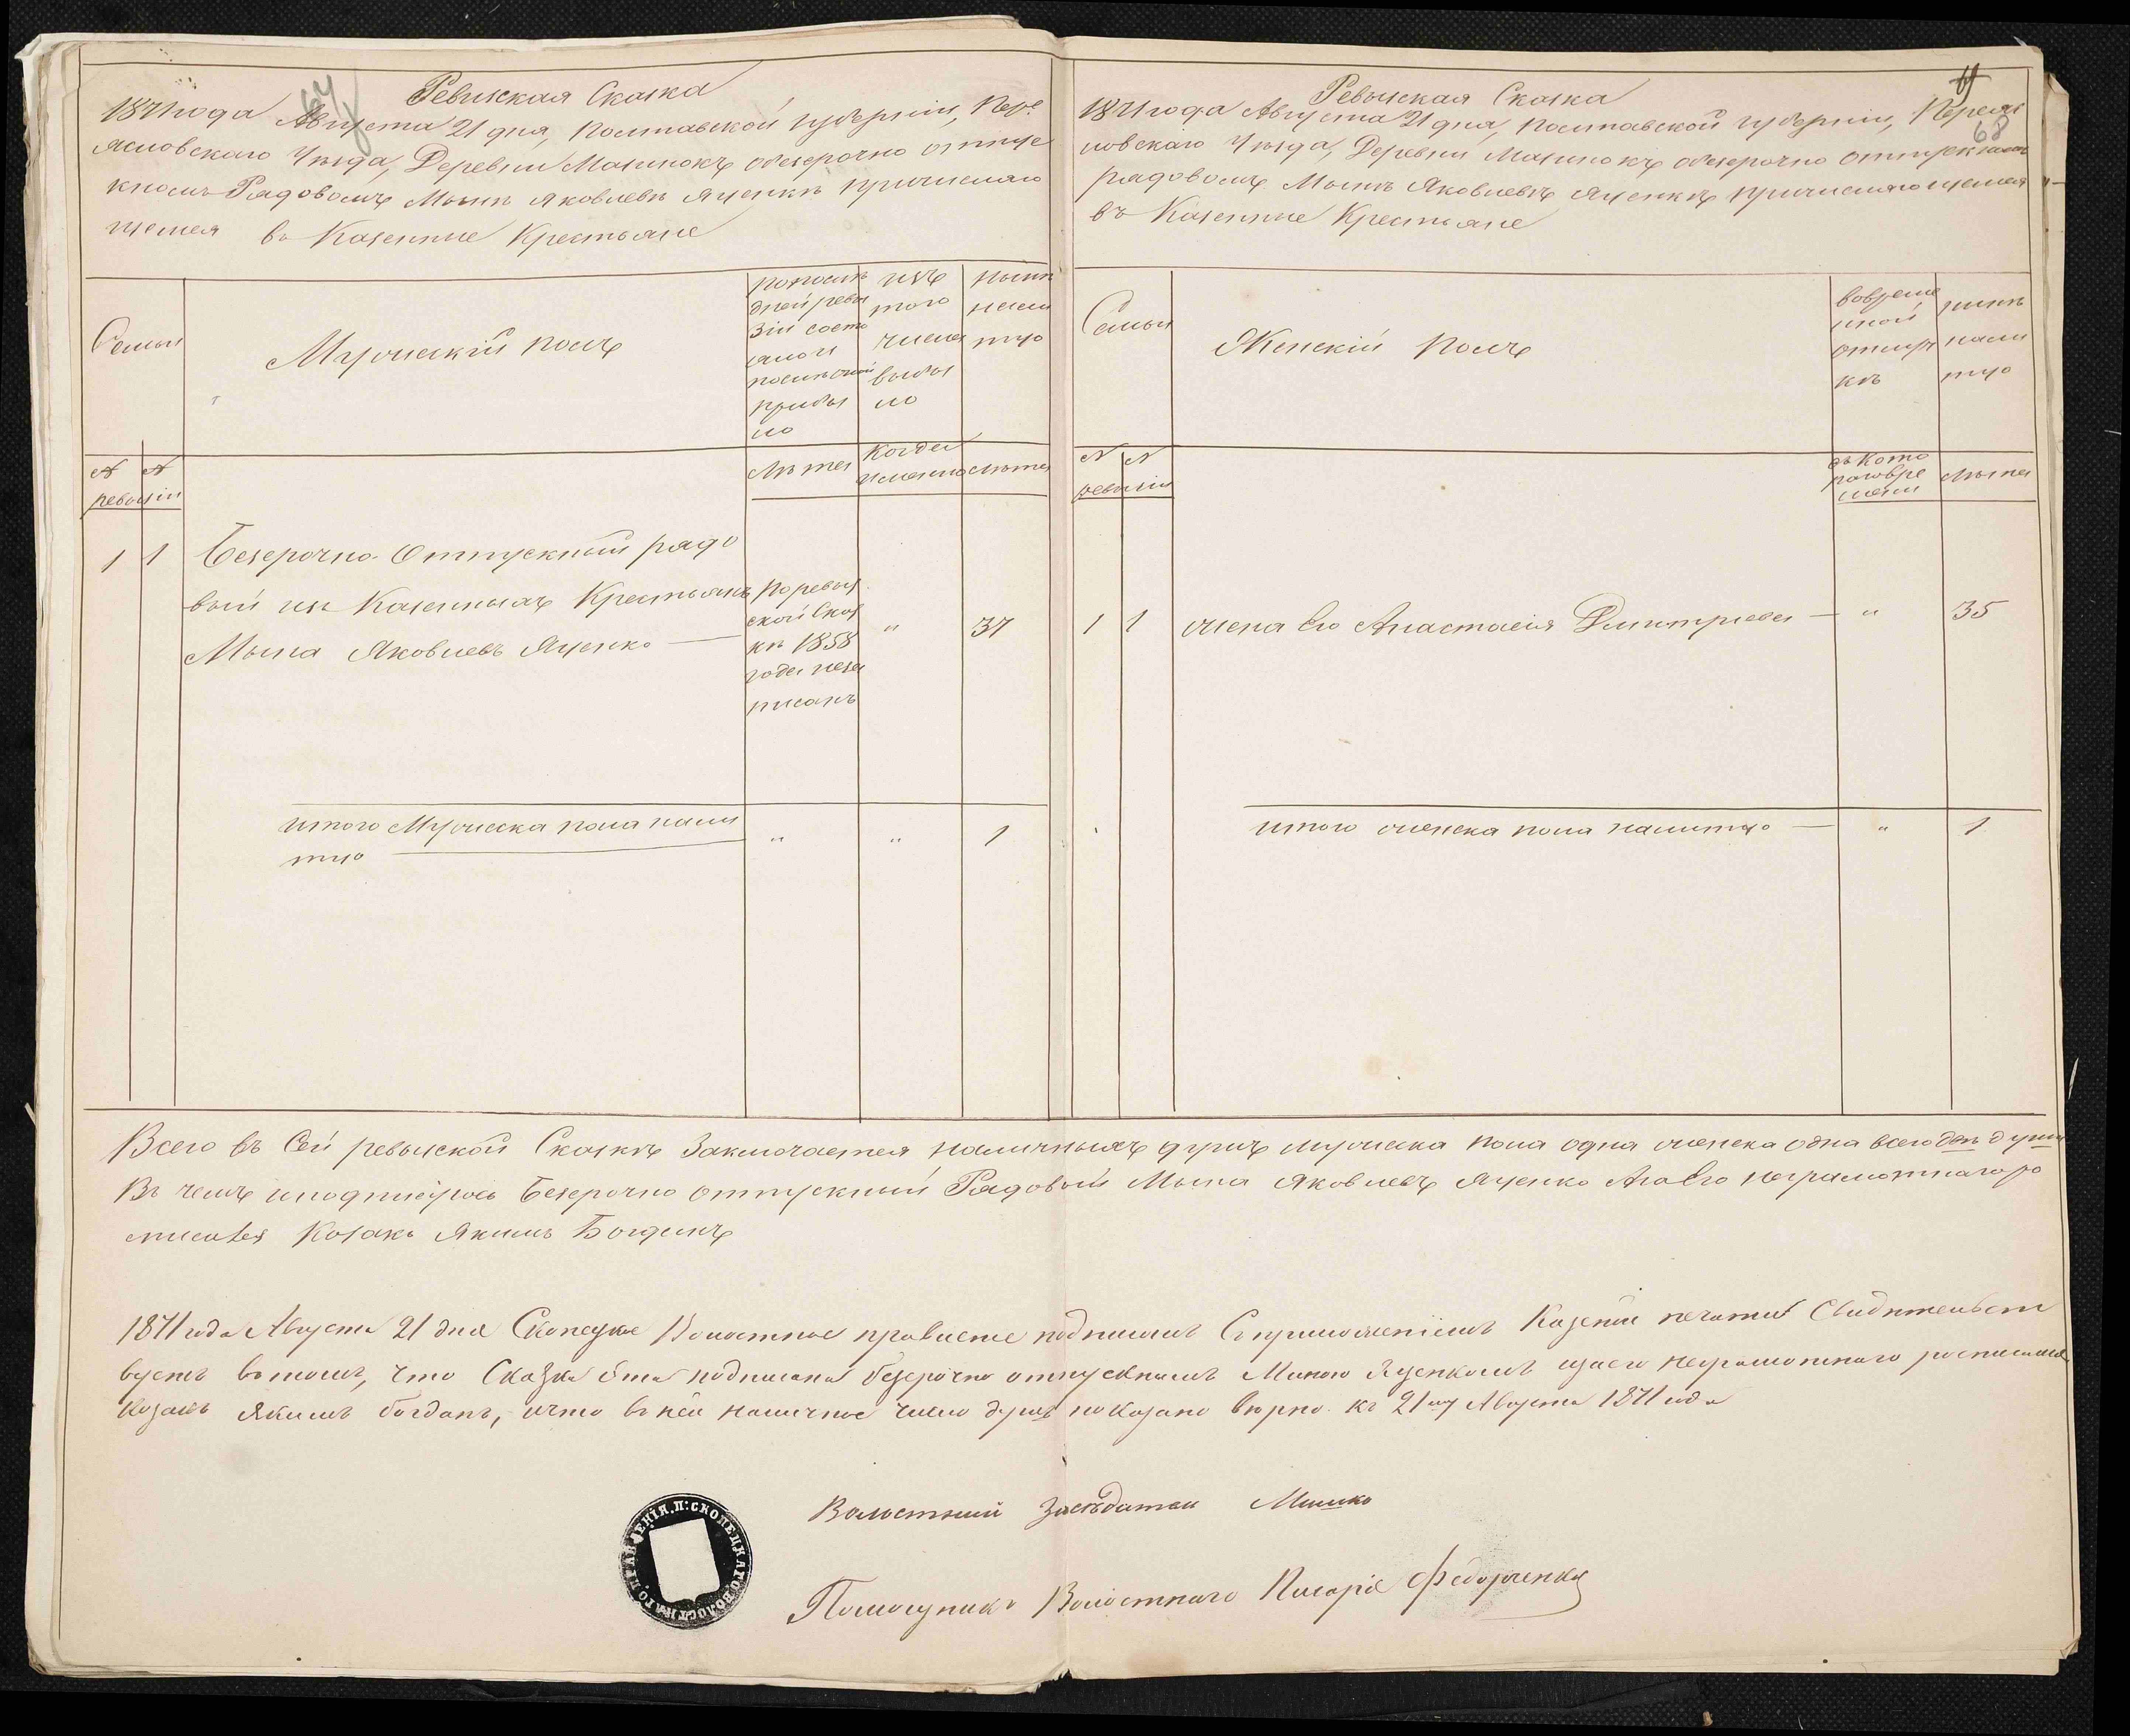 Ревизская Сказка
1871 года Августа 21 дня, Полтавской губернии, Пере
яславского Уезда, Деревни Мазинокъ безсрочно отпус
кномъ Рядовомъ Мынѣ Яковлевѣ Яценкѣ причисляю
щемся въ Казенные Крестьяне
Семьи
Мужескій полъ
по послѣ
дней реви
зіи состо
яло и
после оной
прибы
ло
изъ
того
числа
выбы
ло
нынѣ
нали
цо
№ №
ревизіи
Лѣта
Когда
именно
Лѣта
1 1 Безсрочно-Отпускный рядо
вый изъ Казенныхъ Крестьянъ
Мына Яковлевъ Яценко —
По ревиз
ской Сказ
кѣ 1858
года неза
писанъ
" 37
итого Мужеска пола нали
цо " " 1
67
Ревызская Сказка
1871 года Августа 21 дня, Полтавской губерніи, Переяс
ловскаго Уезда, Деревни Мазинокъ безсрочно отпускномъ
рядовомъ Мынѣ Яковлевѣ Яценкѣ причисляющемся
въ Казенные Крестьяне
68
Семьи
Женскій Полъ
вовреме
нной
отлуч
кѣ
нынѣ
нали
цо
№ №
ревизіи
съ Кото
раговре
мени
Лѣта
1 1 жена Его Анастасія Дмитріева — " 35
итого женска пола налицо — " 1
Всего въ Сей ревызской Сказкѣ Заключается наличныхъ душъ мужеска пола одна женска одна всего двѣ души
Въ чемъ и подписуюсь Безсрочно отпускный Рядовый Мына Яковлевъ Яценко Аза Его неграмотнаго ро
списался Козакъ Якимъ Богданъ
1871 года Августа 21 дня Скопецкое Волостное правленіе подписомъ Съ приложеніемъ Казенной печати Свидѣтельст
вуетъ въ томъ, что Сказка Эта подписана безсрочно отпускнымъ Миною Яценкомъ изаего неграмотнаго росписался
Козакъ Якимъ Богданъ, ичто въ ней наличное число душъ показано вѣрно къ 21му Августа 1871 года
П: СКОПЕЦКАГО ВОЛОСТНАГО ПРАВЛЕНІЯ.
Волостный Засѣдатель
Помощникъ Волостнаго Писаря Федорченко